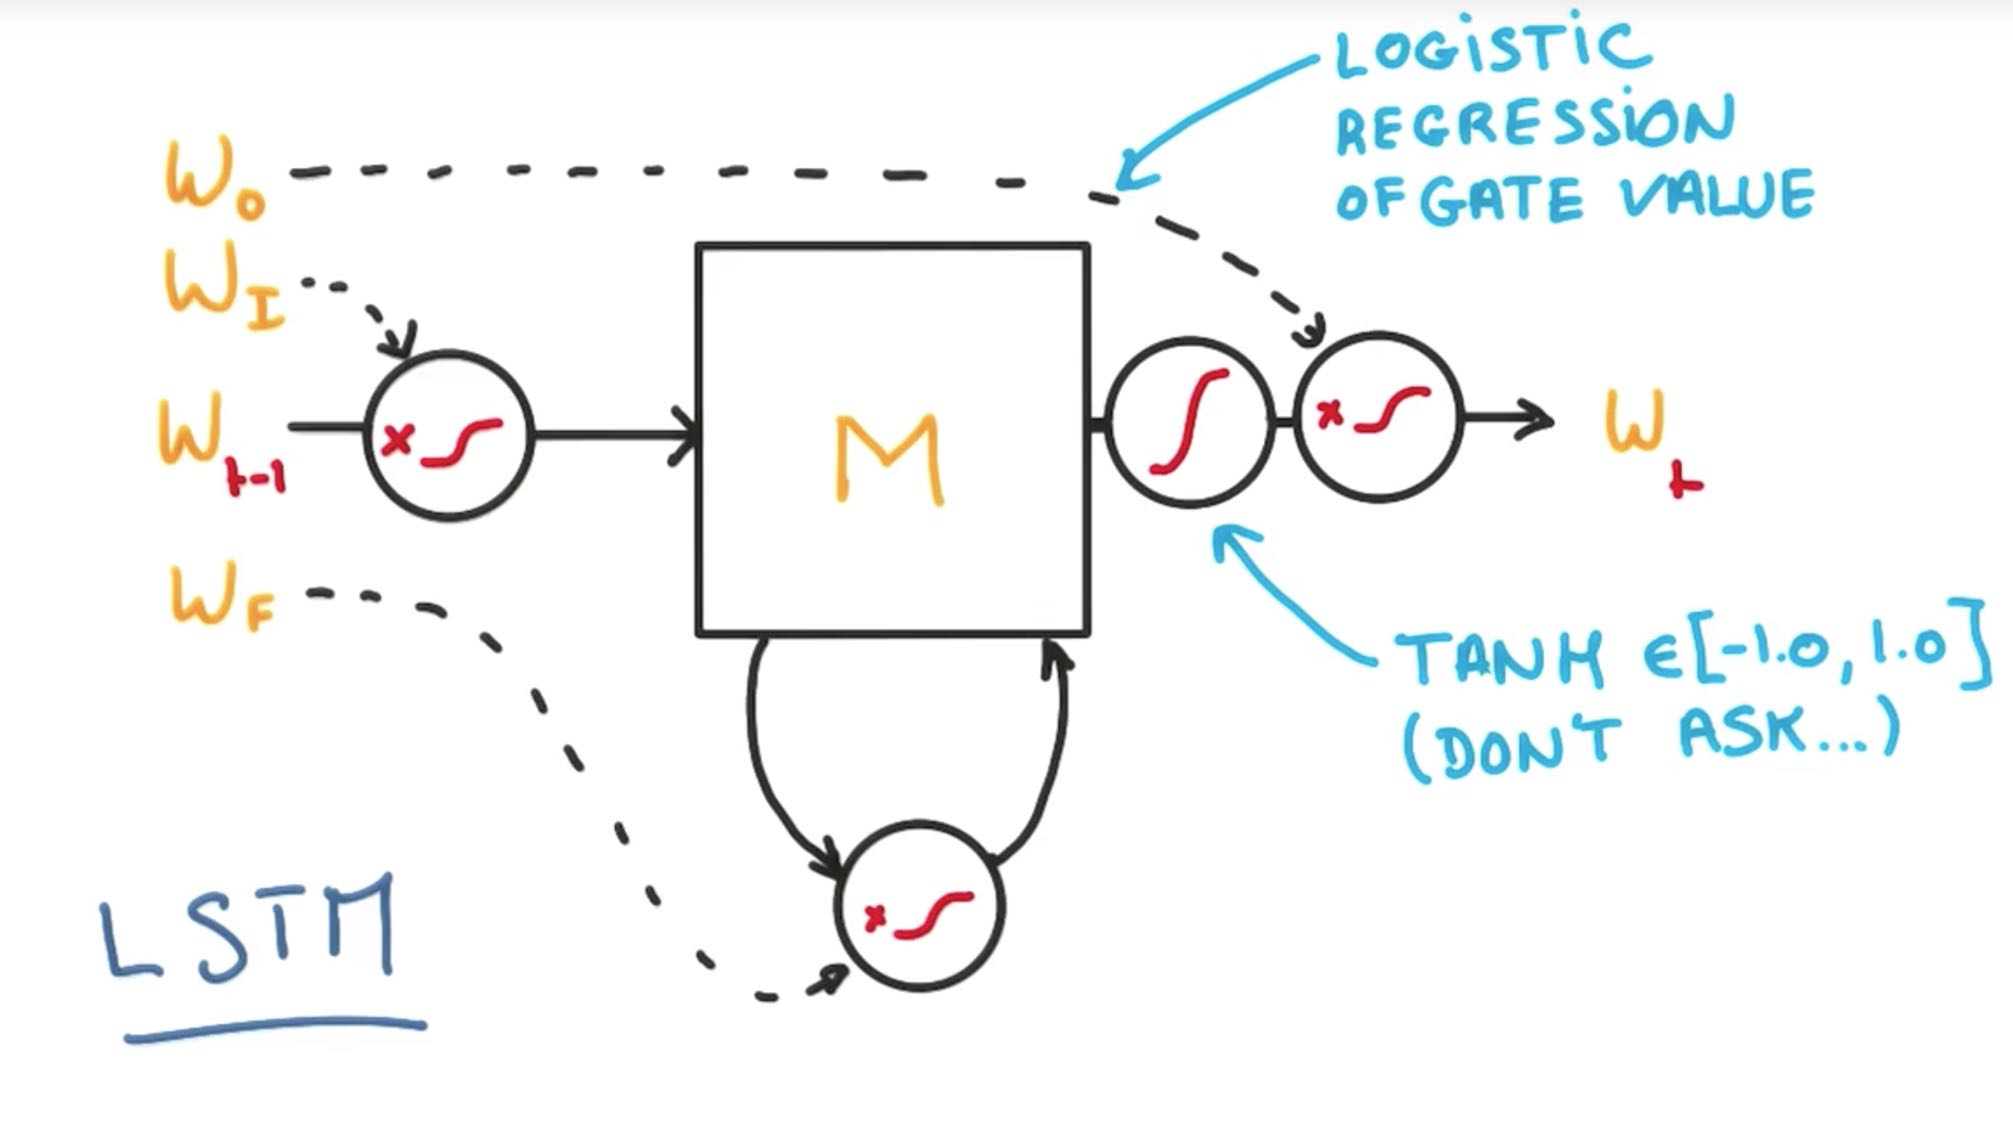 LOGISTIC
REGRESSION
OF GATE VALUE
W_O
W_I
W_t-1
M
x
x
W_t
W_F
TANH ∈[-1.0, 1.0]
(DON'T ASK...)
x
LSTM